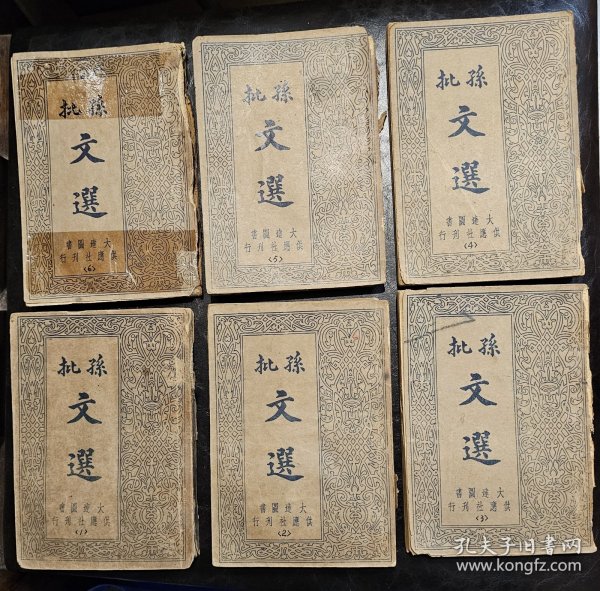 孫批
文選
大達圖書
供應社刊行
(6)
孫批
文選
大達圖書
供應社刊行
(5)
孫批
文選
大達圖書
供應社刊行
(4)
孫批
文選
大達圖書
供應社刊行
(1)
孫批
文選
大達圖書
供應社刊行
(2)
孫批
文選
大達圖書
供應社刊行
(3)
孔夫子旧書网
www.kongfz.com